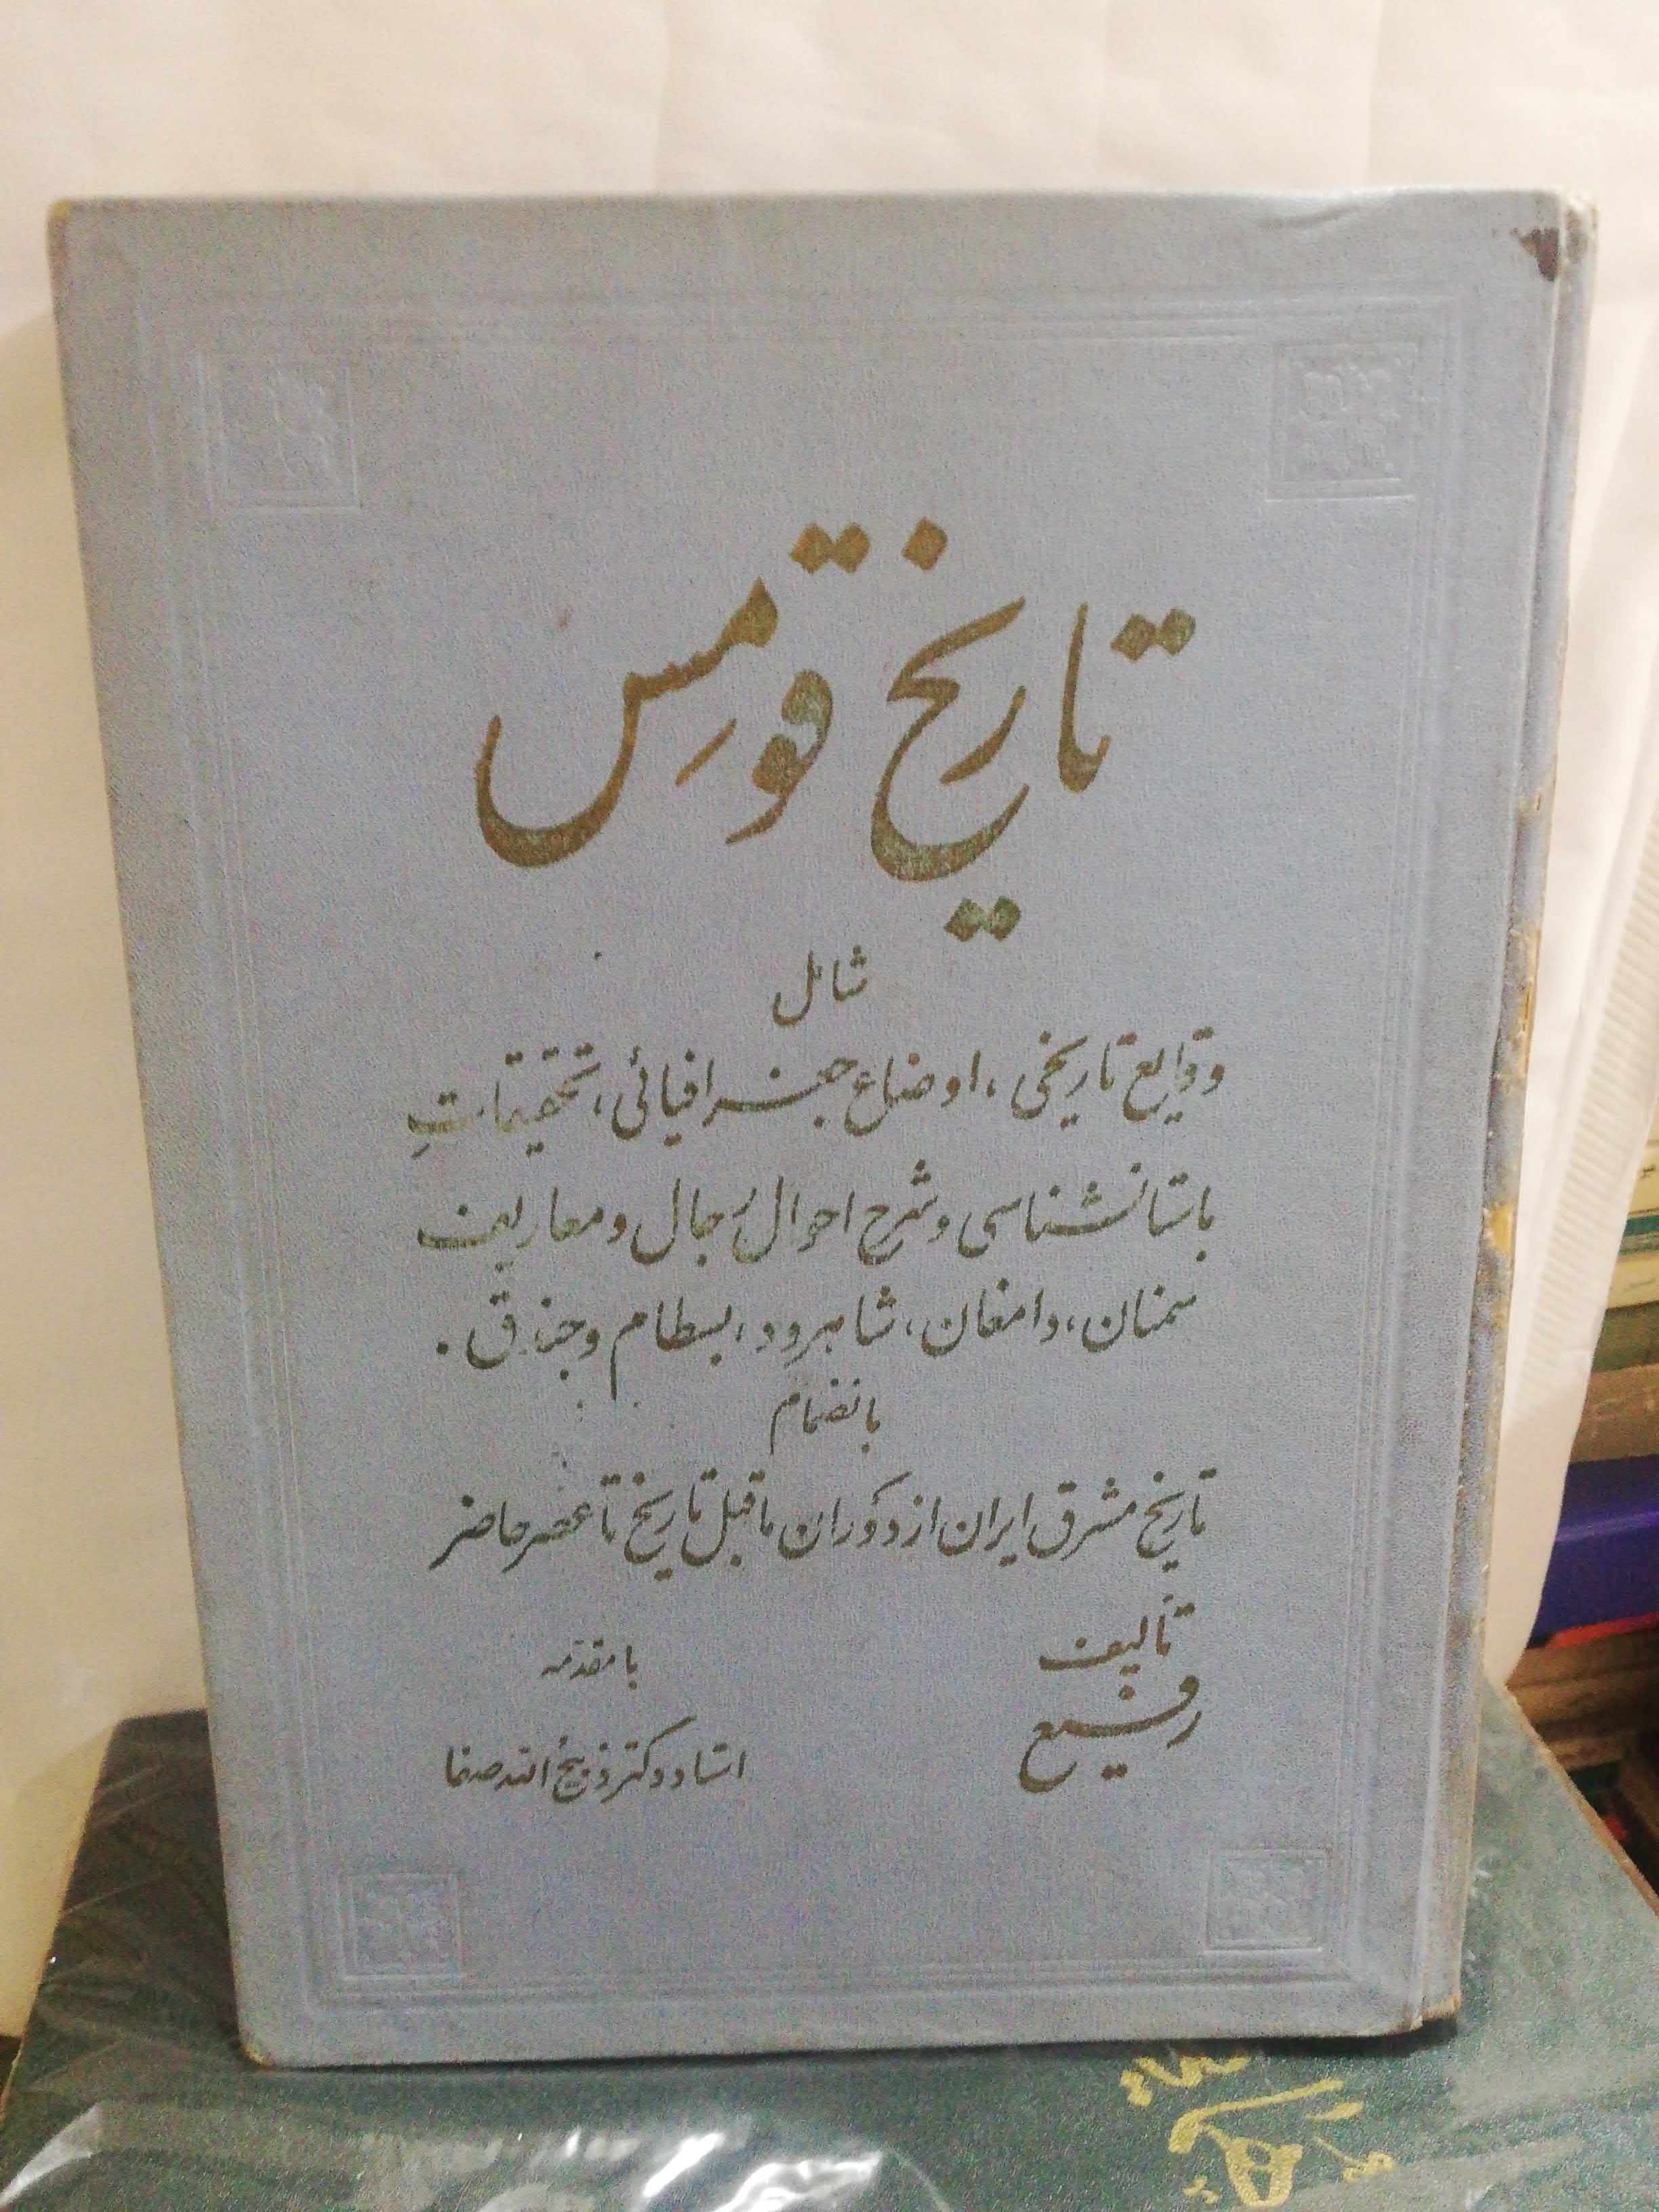 تاریخ قومِس
شامل
وقایع تاریخی، اوضاع جغرافیائی، تحقیقاتِ
باستانشناسی و شرح احوال رجال و معاریف
سمنان، دامغان، شاهرود، بسطام و جندق.
بانضمام
تاریخ مشرق ایران از دوران ماقبل تاریخ تا عصر حاضر
تألیف
رفیع
با مقدمه
استاد دکتر ذبیح الله صفا